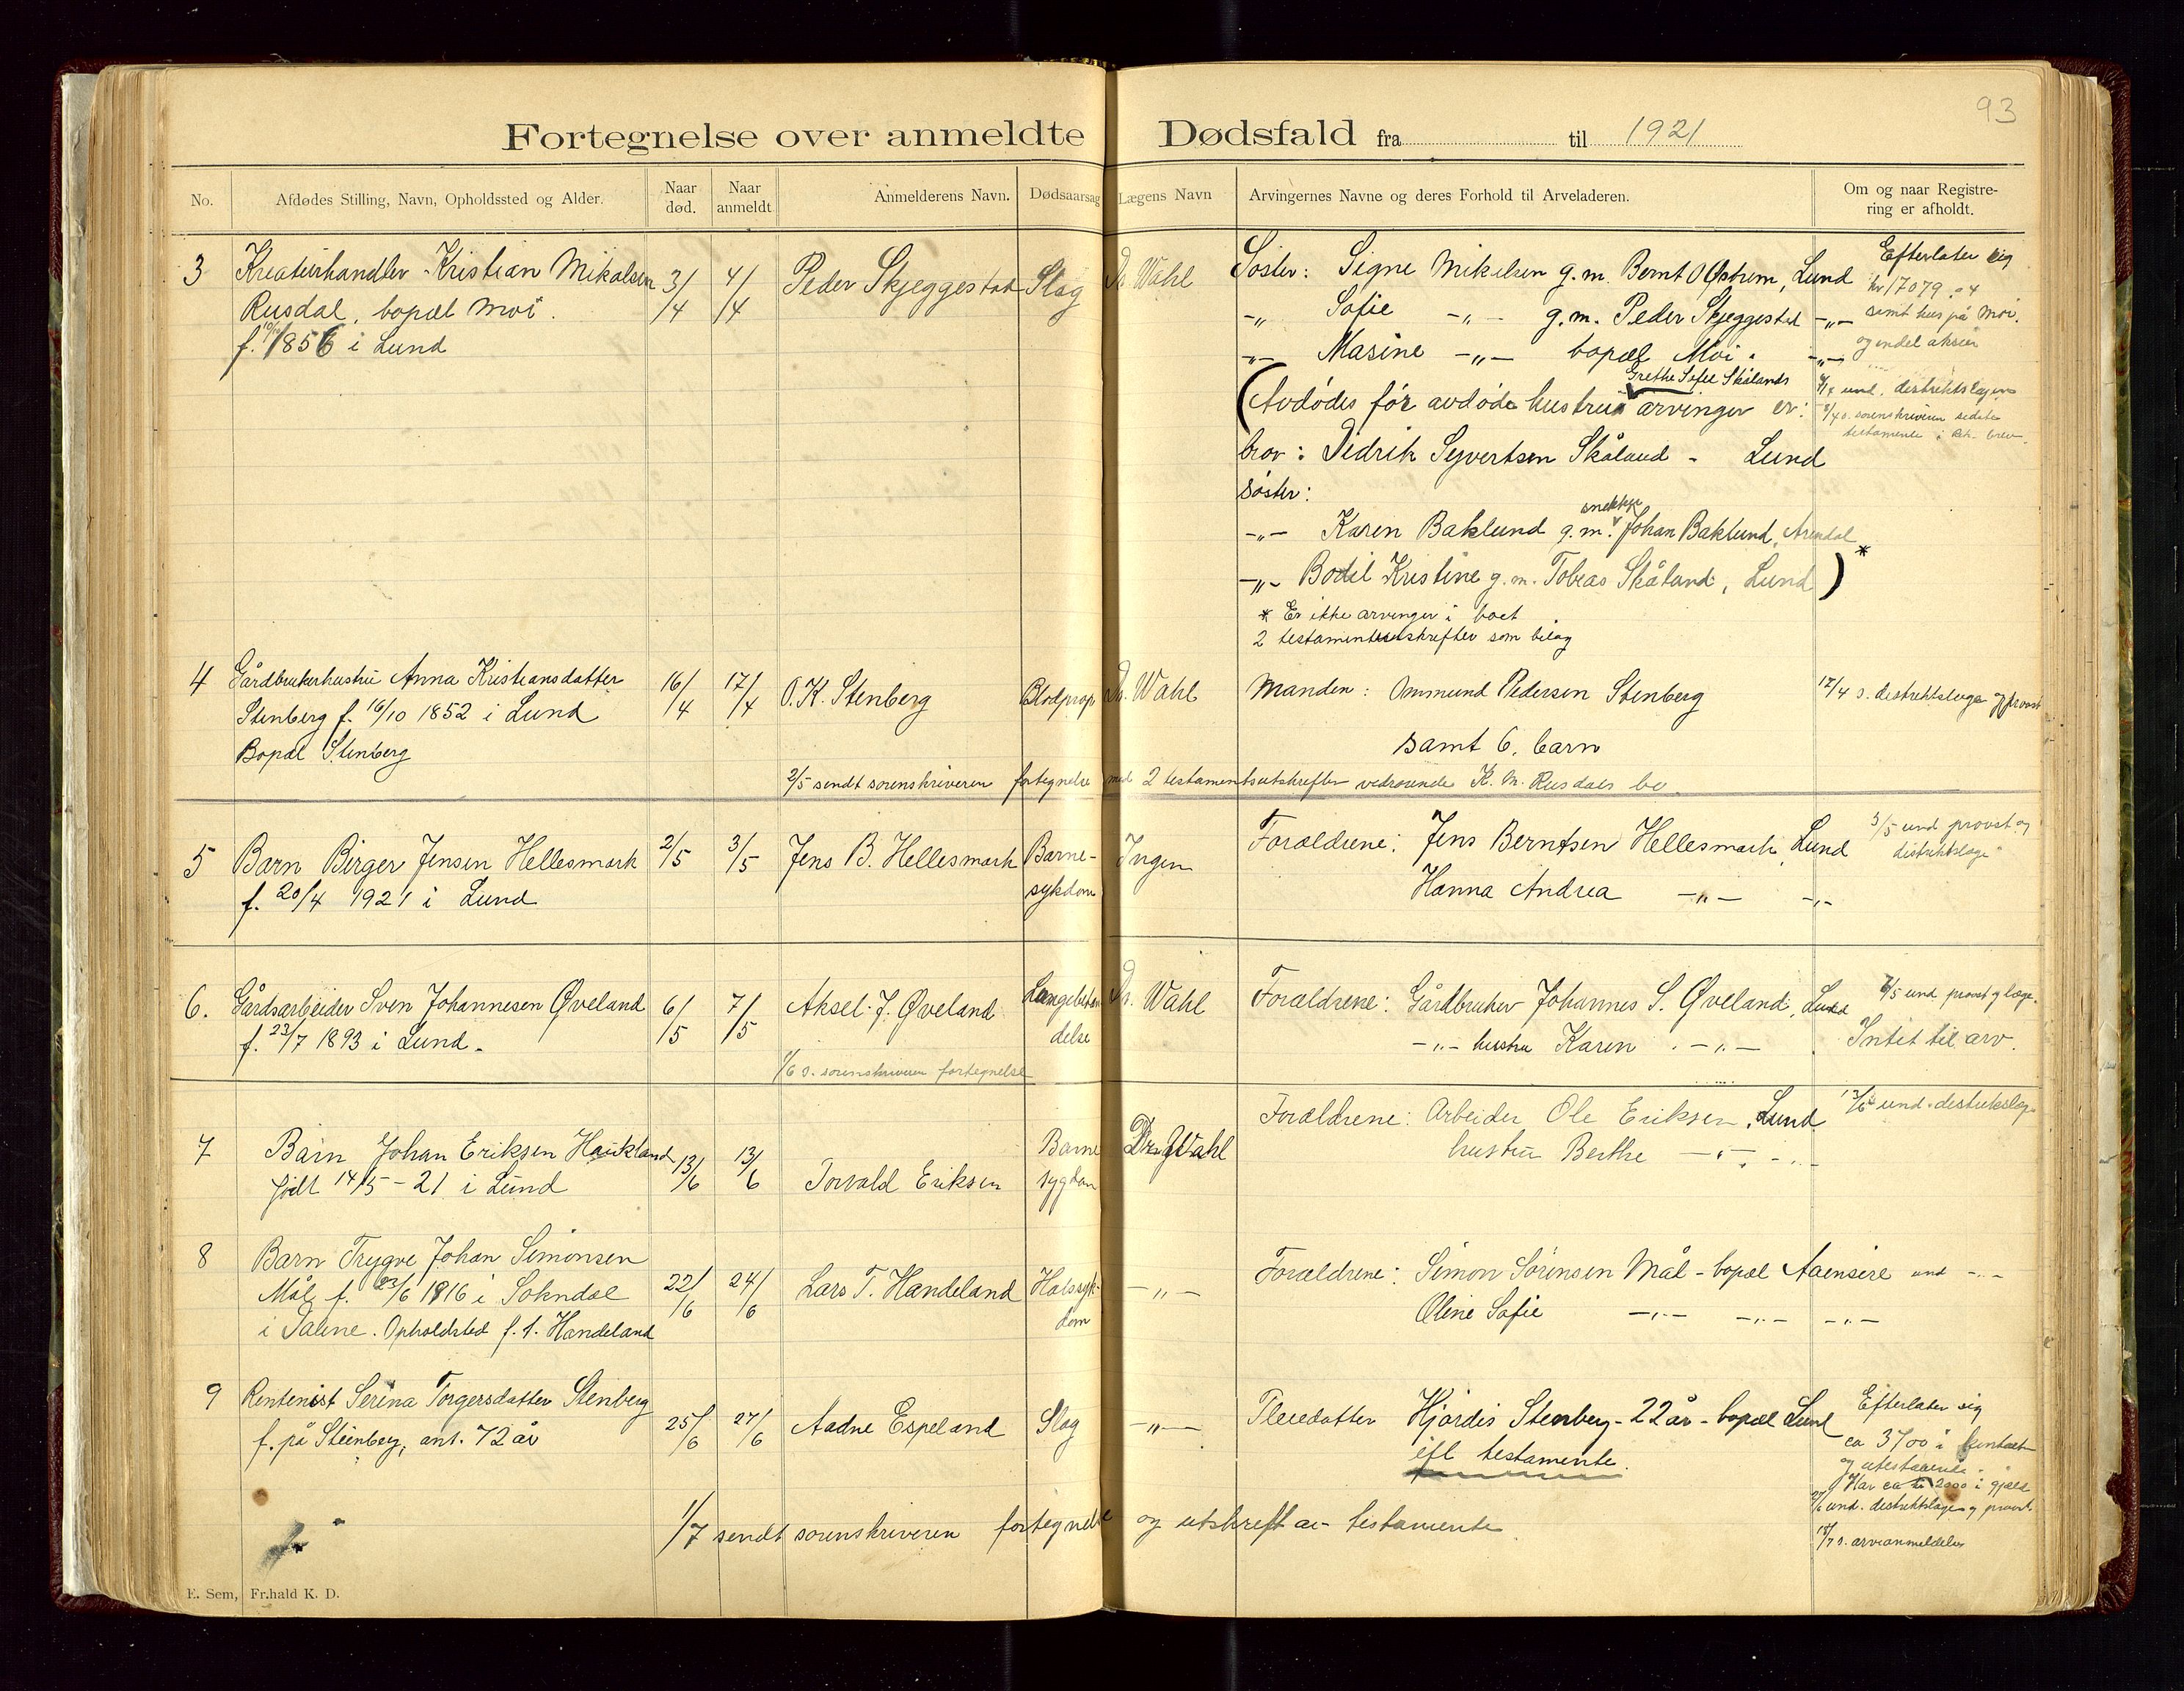 93
Fortegnelse over anmeldte Dødsfald fra til 1921
No. Afdødes Stilling, Navn, Opholdssted og Alder. Naar død. Naar anmeldt Anmelderens Navn. Dødsaarsag Lægens Navn Arvingernes Navne og deres Forhold til Arveladeren. Om og naar Registrering er afholdt.
3 Kreaturhandler Kristian Mikalsen 3/4 4/4 Peder Skjeggestad Slag Dr. Wahl
Rusdal, bopæl Moi.
f. 1856 i Lund
Søster: Signe Mikalsen g.m. Bernt O Østrem, Lund
-"- Sofie -"- g.m. Peder Skjeggestad -"-
-"- Masine -"- bopæl Moi. -"-
Grethe Sofie Skålands
(Avdødes før avdøde hustrus arvinger er:
bror: Didrik Syvertsen Skåland - Lund
søster:
snekker
-"- Karen Baklund g.m. Johan Baklund, Arendal
-"- Bodil Kristine g.m. Tobias Skåland, Lund) *
* Er ikke arvinger i boet
2 testamentsutskrifter som bilag
Efterlater sig
kr 17079
samt hus på Moi.
og endel aksier
und. distriktslægen
s. sorenskriveren
testamente i brev
4 Gårdbrukerhustru Anna Kristiansdatter 16/4 17/4 O. K. Stenberg Blodprop Dr. Wahl Manden: Ommund Pedersen Stenberg 17/4 s. distriktslæge og provst
Stenberg f. 16/10 1852 i Lund
Bopæl Stenberg
samt 6. barn
2/5 sendt sorenskriveren fortegnelse med 2 testamentsutskrifter vedrørende K. M. Rusdals bo.
5 Barn Birger Jensen Hellesmark 2/5 3/5 Jens B. Hellesmark Barne- Ingen Forældrene: Jens Berntsen Hellesmark, Lund 3/5 und provst og
f. 20/4 1921 i Lund sykdom Hanna Andrea -"- -"- distriktslæge
6. Gårdsarbeider Sven Johannesen Øveland 6/5 7/5 Aksel J. Øveland Lungebeten- Dr. Wahl Forældrene: Gårdbruker Johannes S. Øveland, Lund 7/5 und provst og læge.
f. 23/7 1893 i Lund. delse -"- hustru Karen -"- Intet til arv.
1/6 s. sorenskriveren fortegnelse
7 Barn Johan Eriksen Haukland 13/6 13/6 Torvald Eriksen Barne Dr. Wahl Forældrene: Arbeider Ole Eriksen, Lund 13/6 und. distrikslæge
født 14/5 - 21 i Lund sygdom hustru Berthe -"- -"-
8 Barn Trygve Johan Simonsen 22/6 24/6 Lars T. Handeland Halssyk- -"- Forældrene: Simon Sørensen Mål - bopæl Aaensire und -"-
Mål f. 23/6 1916 i Sokndal dom Oline Sofie -"- -"- -"-
i Dalene. Opholdsted f. t. Handeland
9 Rentenist Serina Torgersdatter Stenberg 25/6 27/6 Aadne Espeland Slag -"- Pleiedatter Hjørdis Stenberg - 22 år - bopæl Lund
f. på Steinberg, ant. 72 år efl testamente.
Efterlater sig
ca 3700 i kontant
og utestaaende.
Har ca 2000 i gjæld
und. distriktslæge og provst
18/7 s. arveanmeldelse
1/7 sendt sorenskriveren fortegnelse og utskrift av testamente
E. Sem, Fr.hald K. D.